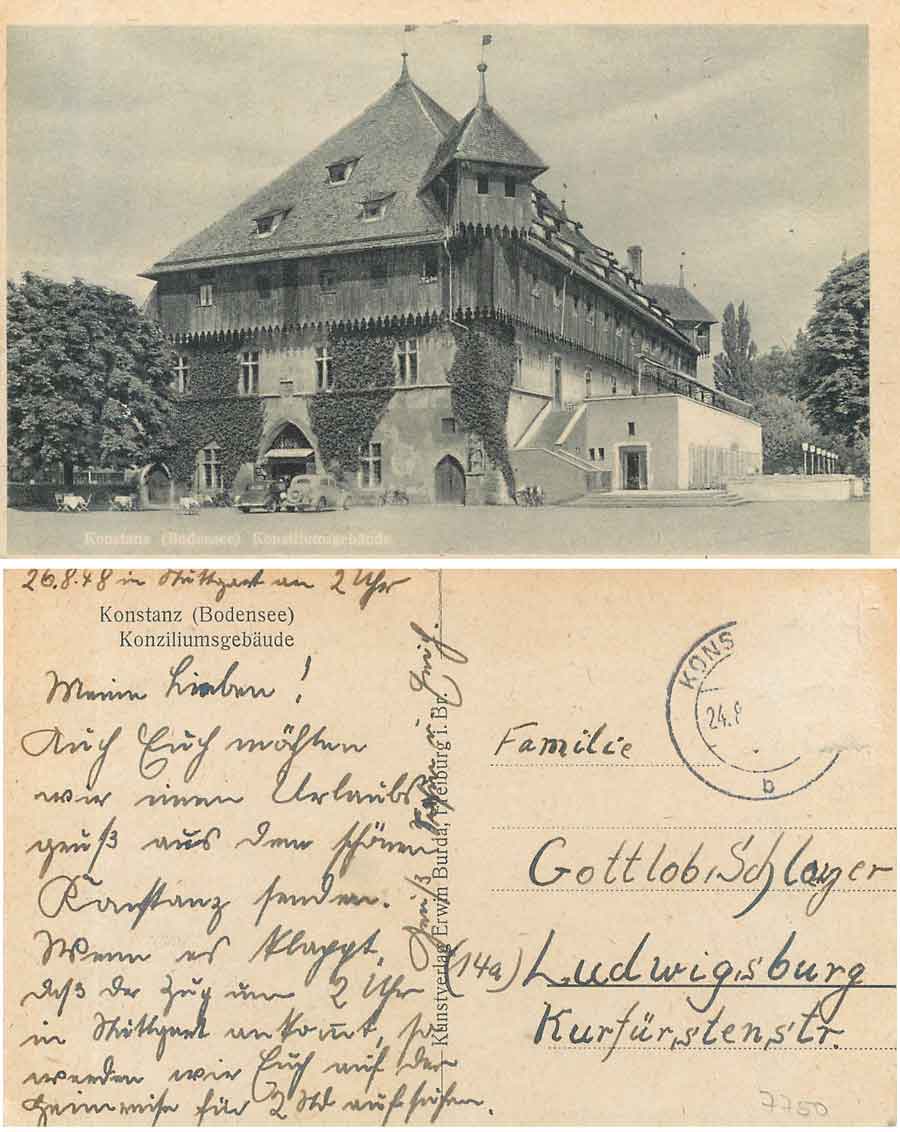 Konstanz (Bodensee) Konziliumsgebäude
26.8.48 in Stuttgart an 2 Uhr
Konstanz (Bodensee)
Konziliumsgebäude
Meine Lieben!
Auch Euch möchten
wir einen Urlaubs
gruß aus dem schönen
Konstanz senden.
Wenn es klappt,
daß der Zug um 2 Uhr
in Stuttgart ankommt, so
werden wir Euch auf der
Heimreise für 2 Std aufsuchen.
Gruß
u
Kunstverlag Erwin Burda, Freiburg i. Br.
KONS
24.8
b
Familie
Gottlob Schlayer
(14a) Ludwigsburg
Kurfürstenstr.
7750